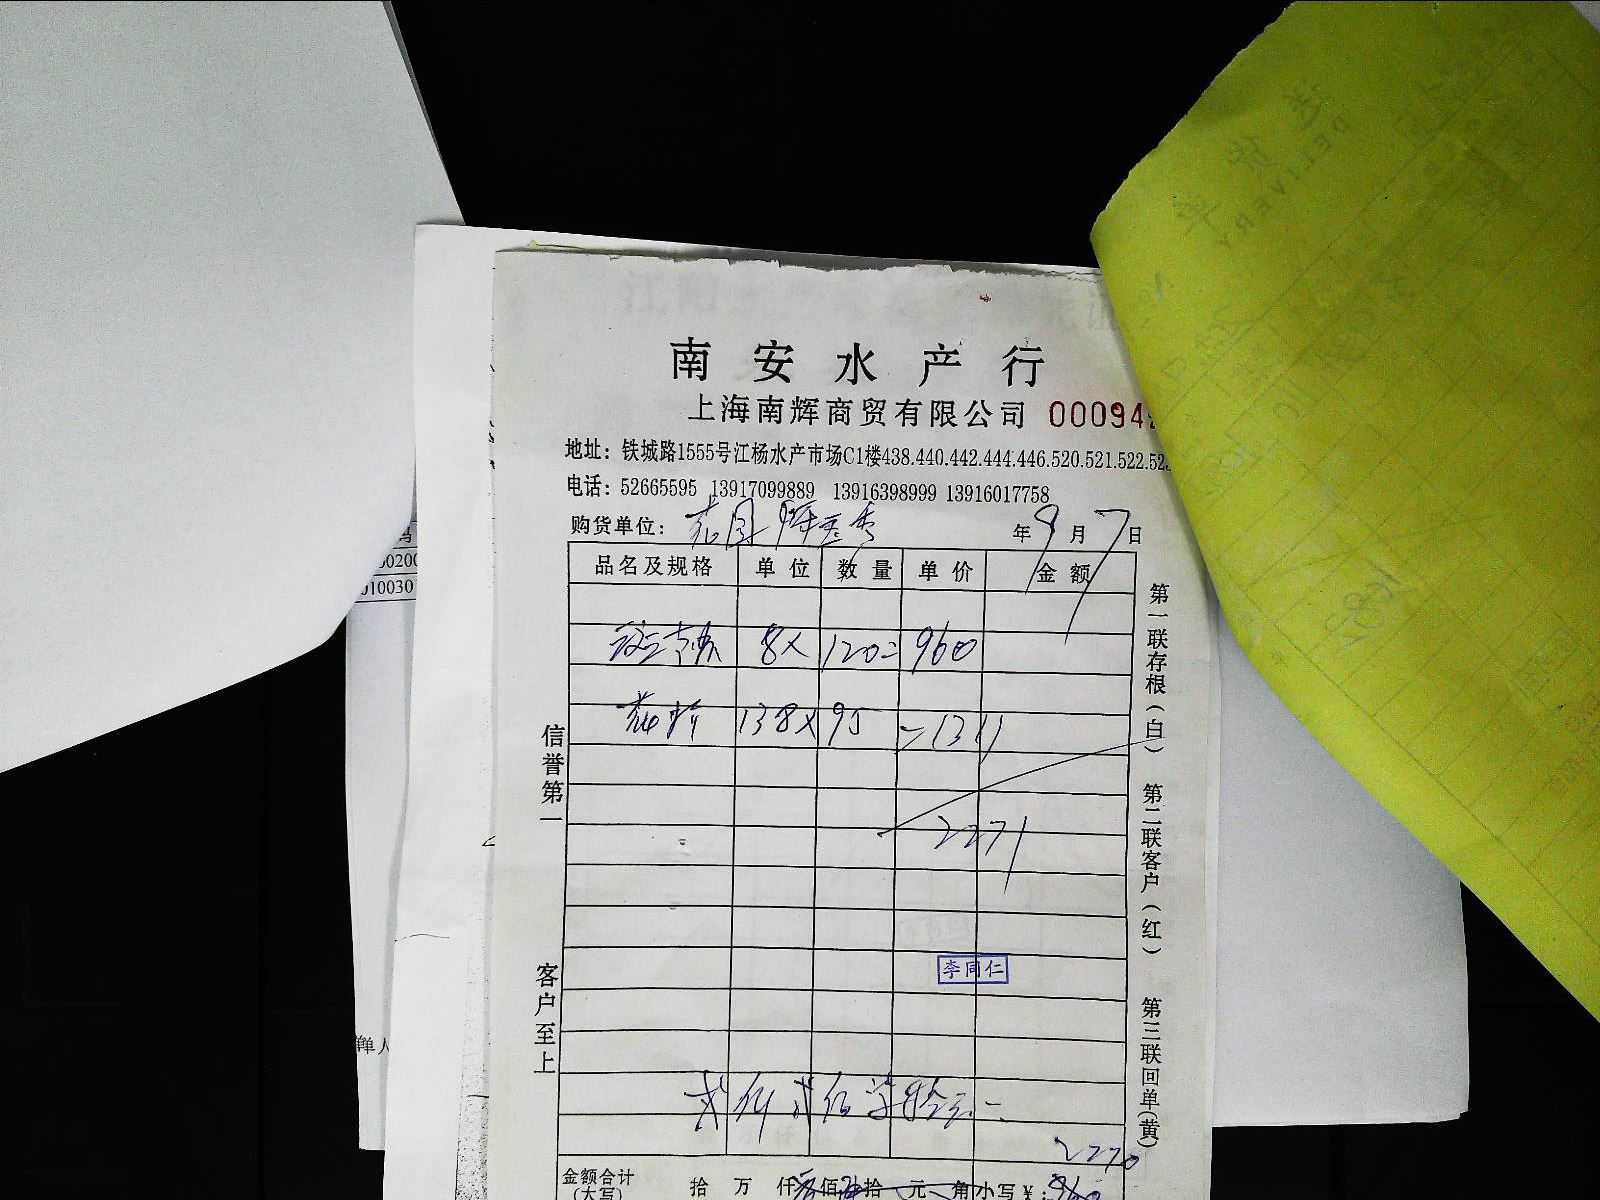 南安水产行
上海南辉商贸有限公司 00094
地址：铁城路1555号江杨水产市场C1楼438.440.442.444.446.520.521.522.523
电话：52665595 13917099889 13916398999 13916017758
购货单位： 花园 年9月7日
品名及规格 单位 数量 单价 金额
8× 120= 960
138× 95 =1311
2271
李同仁
贰仟贰佰柒拾元
2270
金额合计
(大写) 拾 万 仟 佰 拾 元 角 小写¥：960
信誉第一
客户至上
第一联存根(白)
第二联客户(红)
第三联回单(黄)
DELIVERY
0200
010030
单人